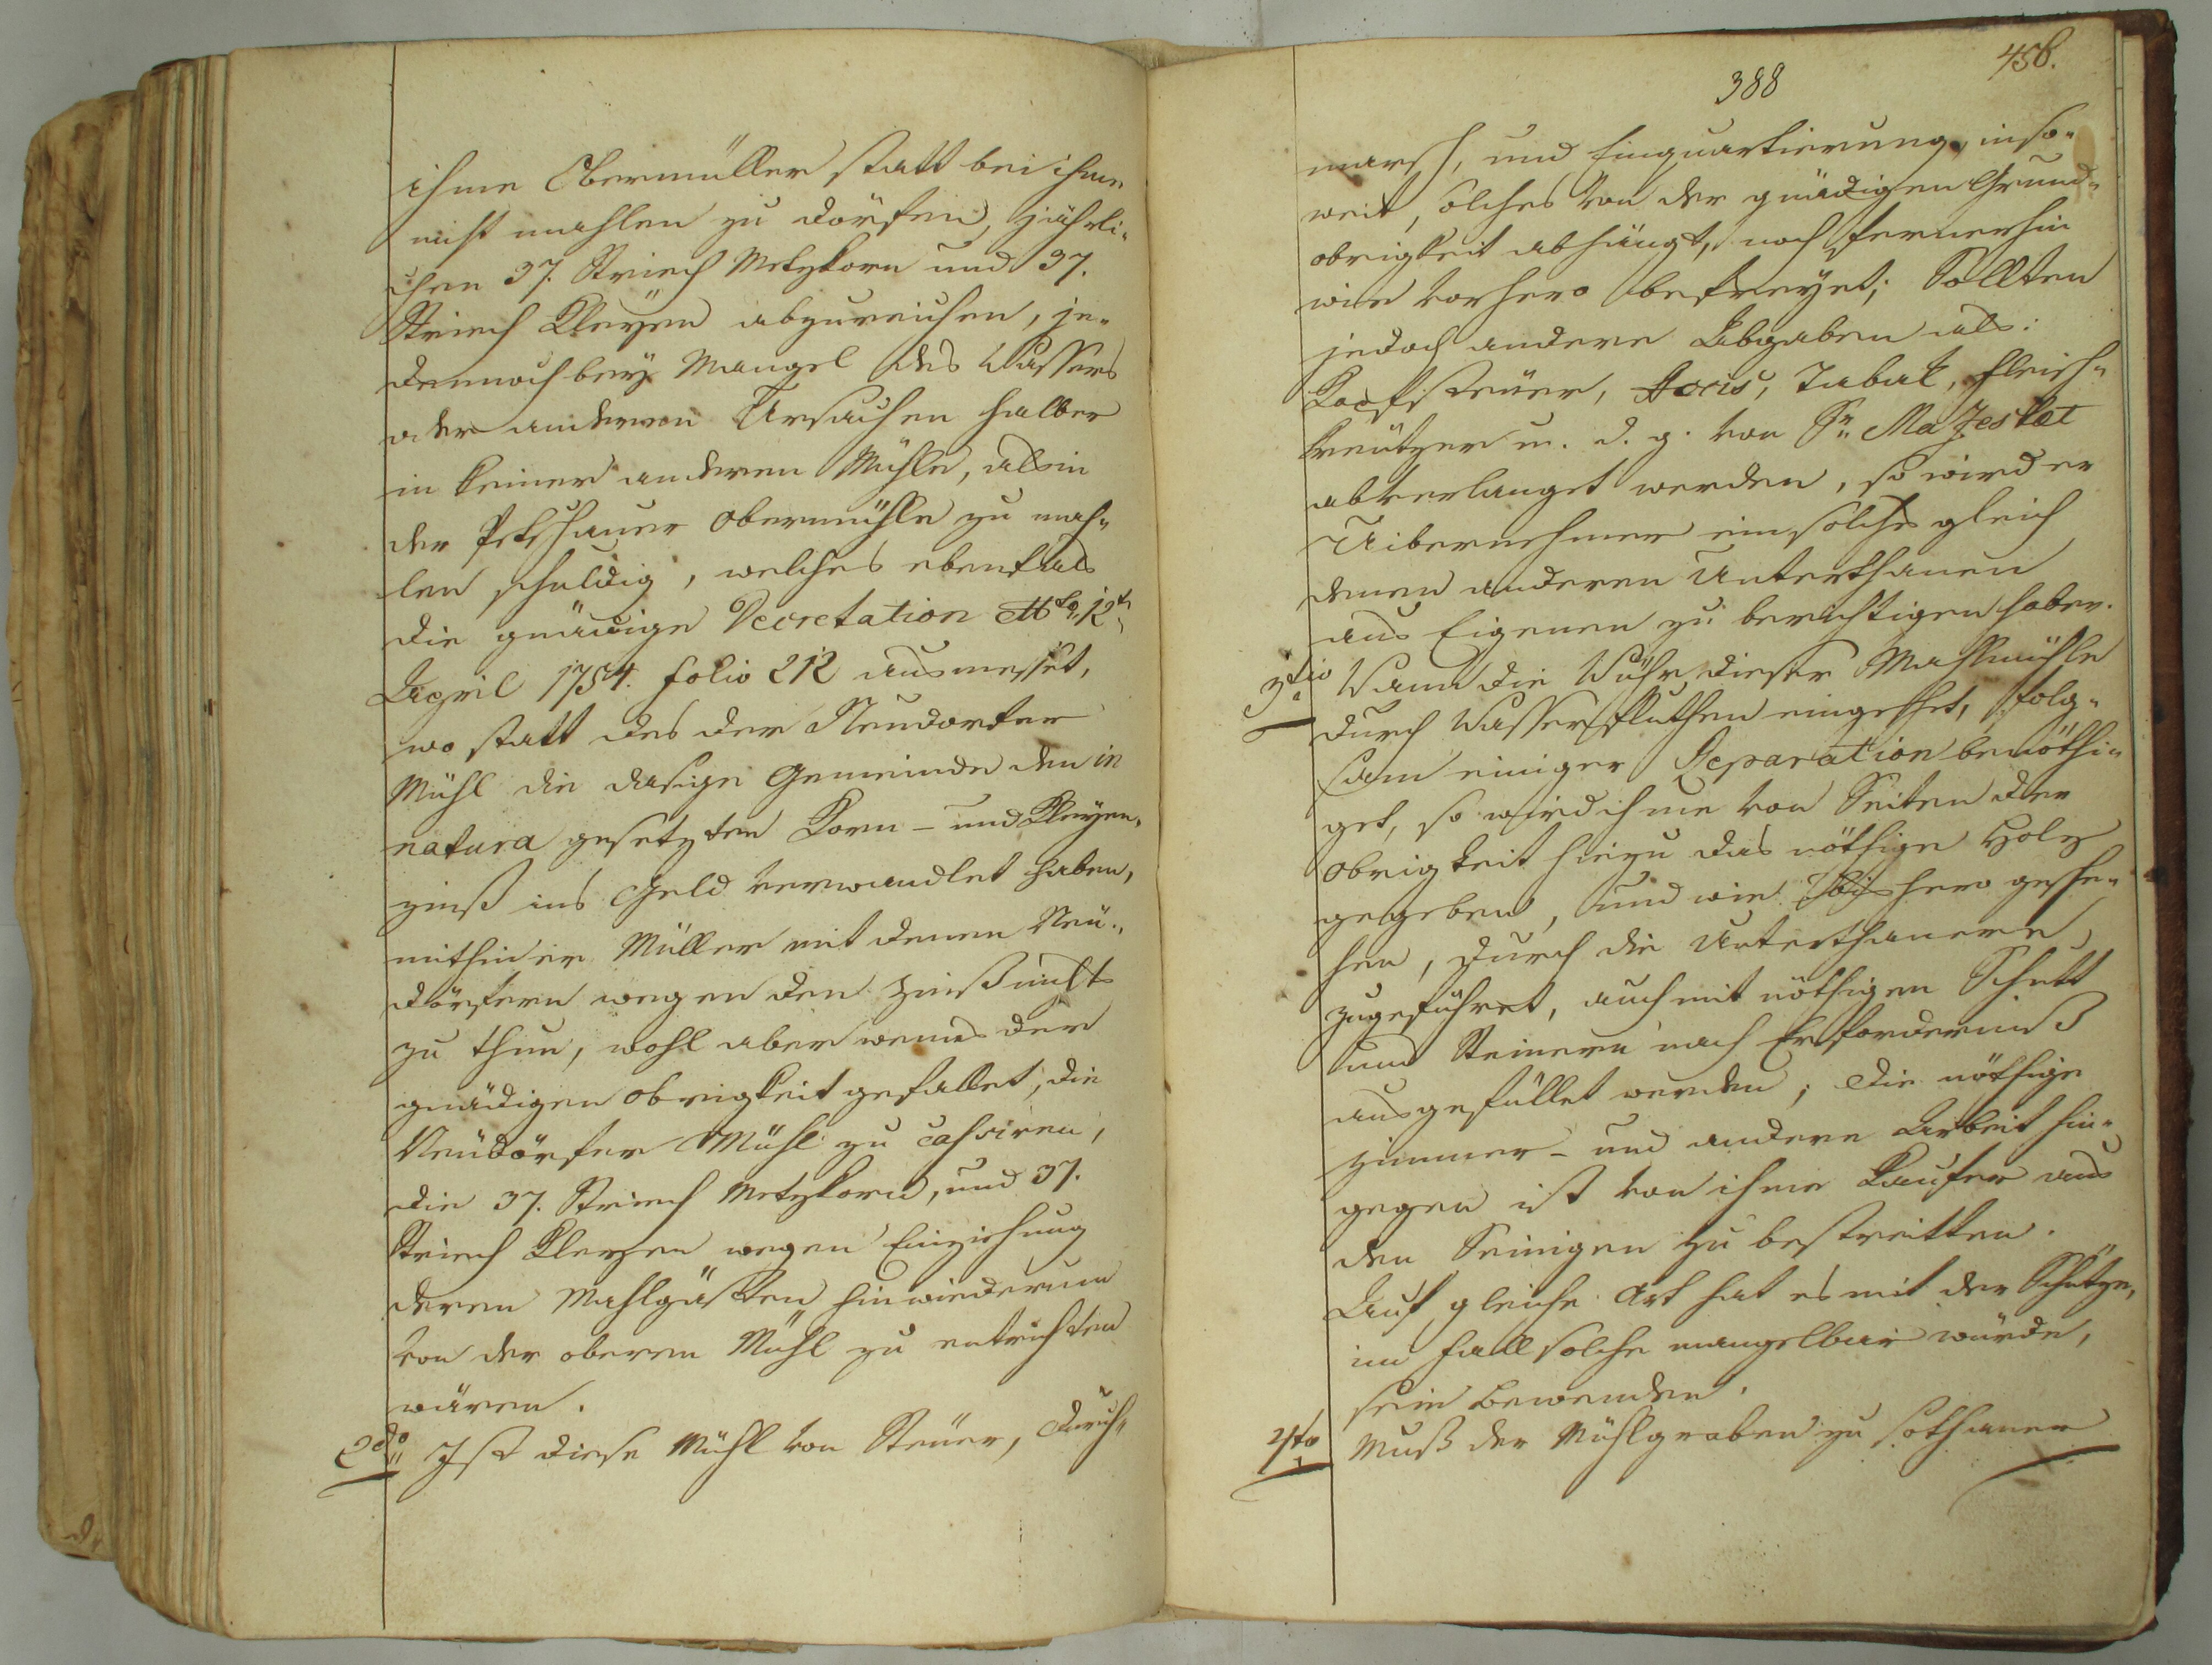 ihme Obermüller statt bei ihme
nicht mahlen zu dörfen, jährli-
chen 37. Striech Metzkorn und 37.
Striech Kleÿen abzureichen, je-
dennoch beÿ Mangel des Wassers
oder anderen Ursachen halber
in keiner anderen Mühle, als in
der Obermühle zu mah-
len schuldig, welches ebenfals
die gnädige Decretation dto 12t
April 1754. folio 212 ausmesset,
wo statt des der Neudorfer
Mühl die dasige Gemeinde den in
natura gesetzten Korn- und Kleÿen-
zinß ins Geld verwandlet haben,
mithin er Müller mit denen Neü-
dörfern wegen den Zinß nichts
zu thun, wohl aber wenns der
gnädigen Obrigkeit gefallet, die
Neüdörfer Mühl zu cassiren,
die 37. Striech Metzkorn, und 37.
Striech Kleyen wegen Einziehung
deren Mahlgästen hinwiederum
von der oberen Mühl zu entrichten
wären.
2do Ist diese Mühl von Steüer, Durch-
388
456.
marsch, und Einquartierung, inso-
weit, solches von der gnädigen Grund-
obrigkeit abhängt, noch fernerhin
wie vorhero befreyet; Sollten
jedoch andere Abgaben als:
Kopfsteüer, Accis, Tabak, Fleisch-
kreützer u. d. g. von Sr. Majestat
abverlanget werden, so wird er
Uibernehmer ein solches gleich
denen anderen Unterthanen
aus Eigenen zu berichtigen haben.
3tio Wann die Wühr dieser Mahlmühle
durch Wasserfluthen eingehet, folg-
sam einiger Reparation benöthi-
get, so wird ihme von Seiten der
Obrigkeit hiezu das nöthige Holz
gegeben, und wie bishero gesche-
hen, durch die Unterthanen
zugeführet, auch mit nöthigen Schutt
und Steinern nach Erforderniß
ausgefüllet werden; die nöthige
Zimmer- und andere Arbeit hin-
gegen ist von ihme Kaufer aus
den Seinigen zu bestreitten.
Auf gleiche Art hat es mit der Schütze,
im Fall solche mangelbar würde,
sein Bewenden.
4to Muß der Mühlgraben zu sothaner